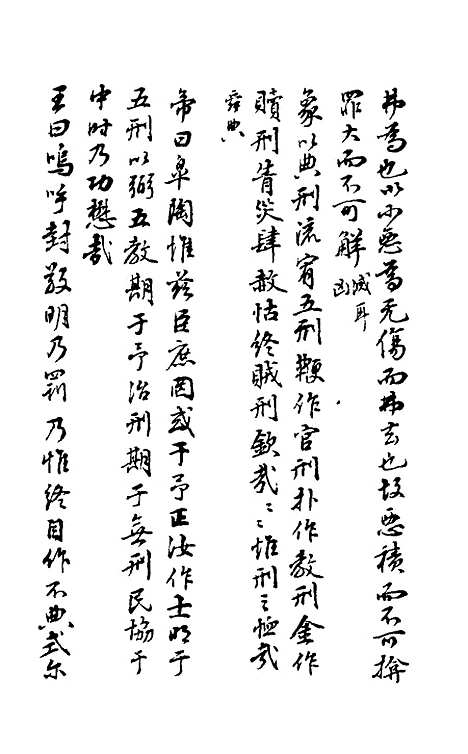 弗為也以小惡為无傷而弗去也故惡積而不可揜
罪大而不可解滅耳凶
象以典刑流宥五刑鞭作官刑扑作教刑金作
贖刑眚災肆赦怙終賊刑欽哉〻〻惟刑之恤哉
舜典
帝曰皋陶惟茲臣庶罔或干予正汝作士明于
五刑以弼五教期于予治刑期于無刑民協于
中時乃功懋哉
王曰嗚呼封敬明乃罰乃惟終自作不典式尔